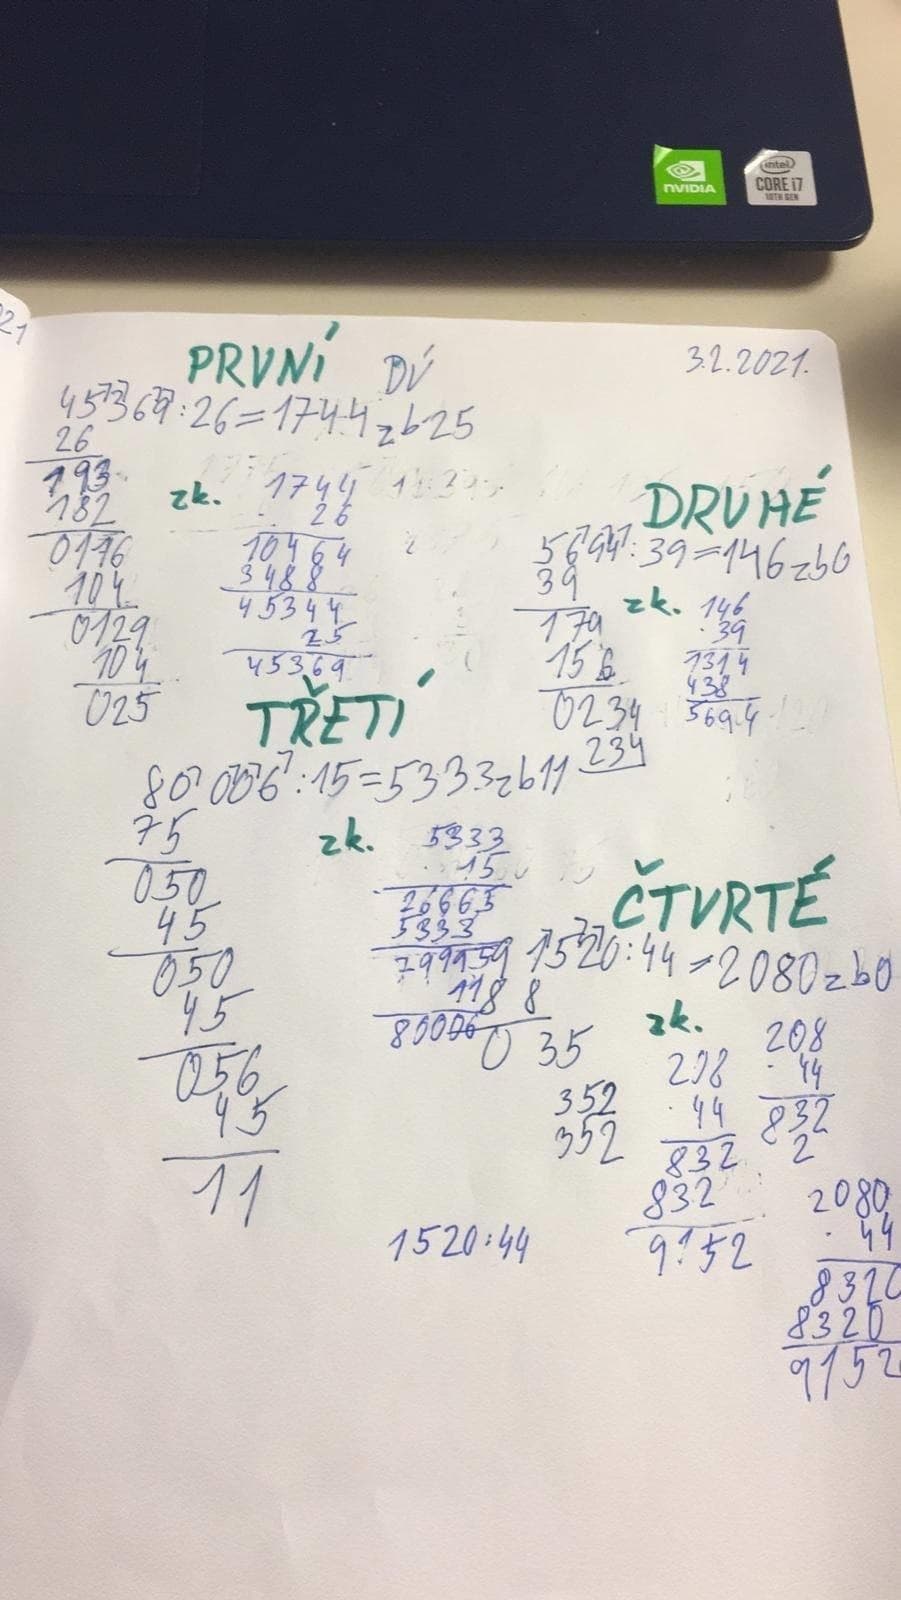 NVIDIA
intel
CORE i7
10TH GEN
21
PRVNÍ
DÚ
3.2.2021.
45369:26=1744 zb25
26
193
182
0116
104
0129
104
025
zk.
1744
. 26
10464
3488
45344
25
45369
DRUHÉ
5694:39=146 zb0
39
179
156
0234
234
zk.
146
. 39
1314
438
5694
TŘETÍ
80 006:15=5333 zb11
75
050
45
050
45
056
45
11
zk.
5333
. 15
26665
5333
11
80006
ČTVRTÉ
1520:44=2080 zb0
88
0 35
352
352
zk.
208
. 44
832
832
9152
208
. 44
832
2
2080
. 44
8320
8320
9152
1520:44